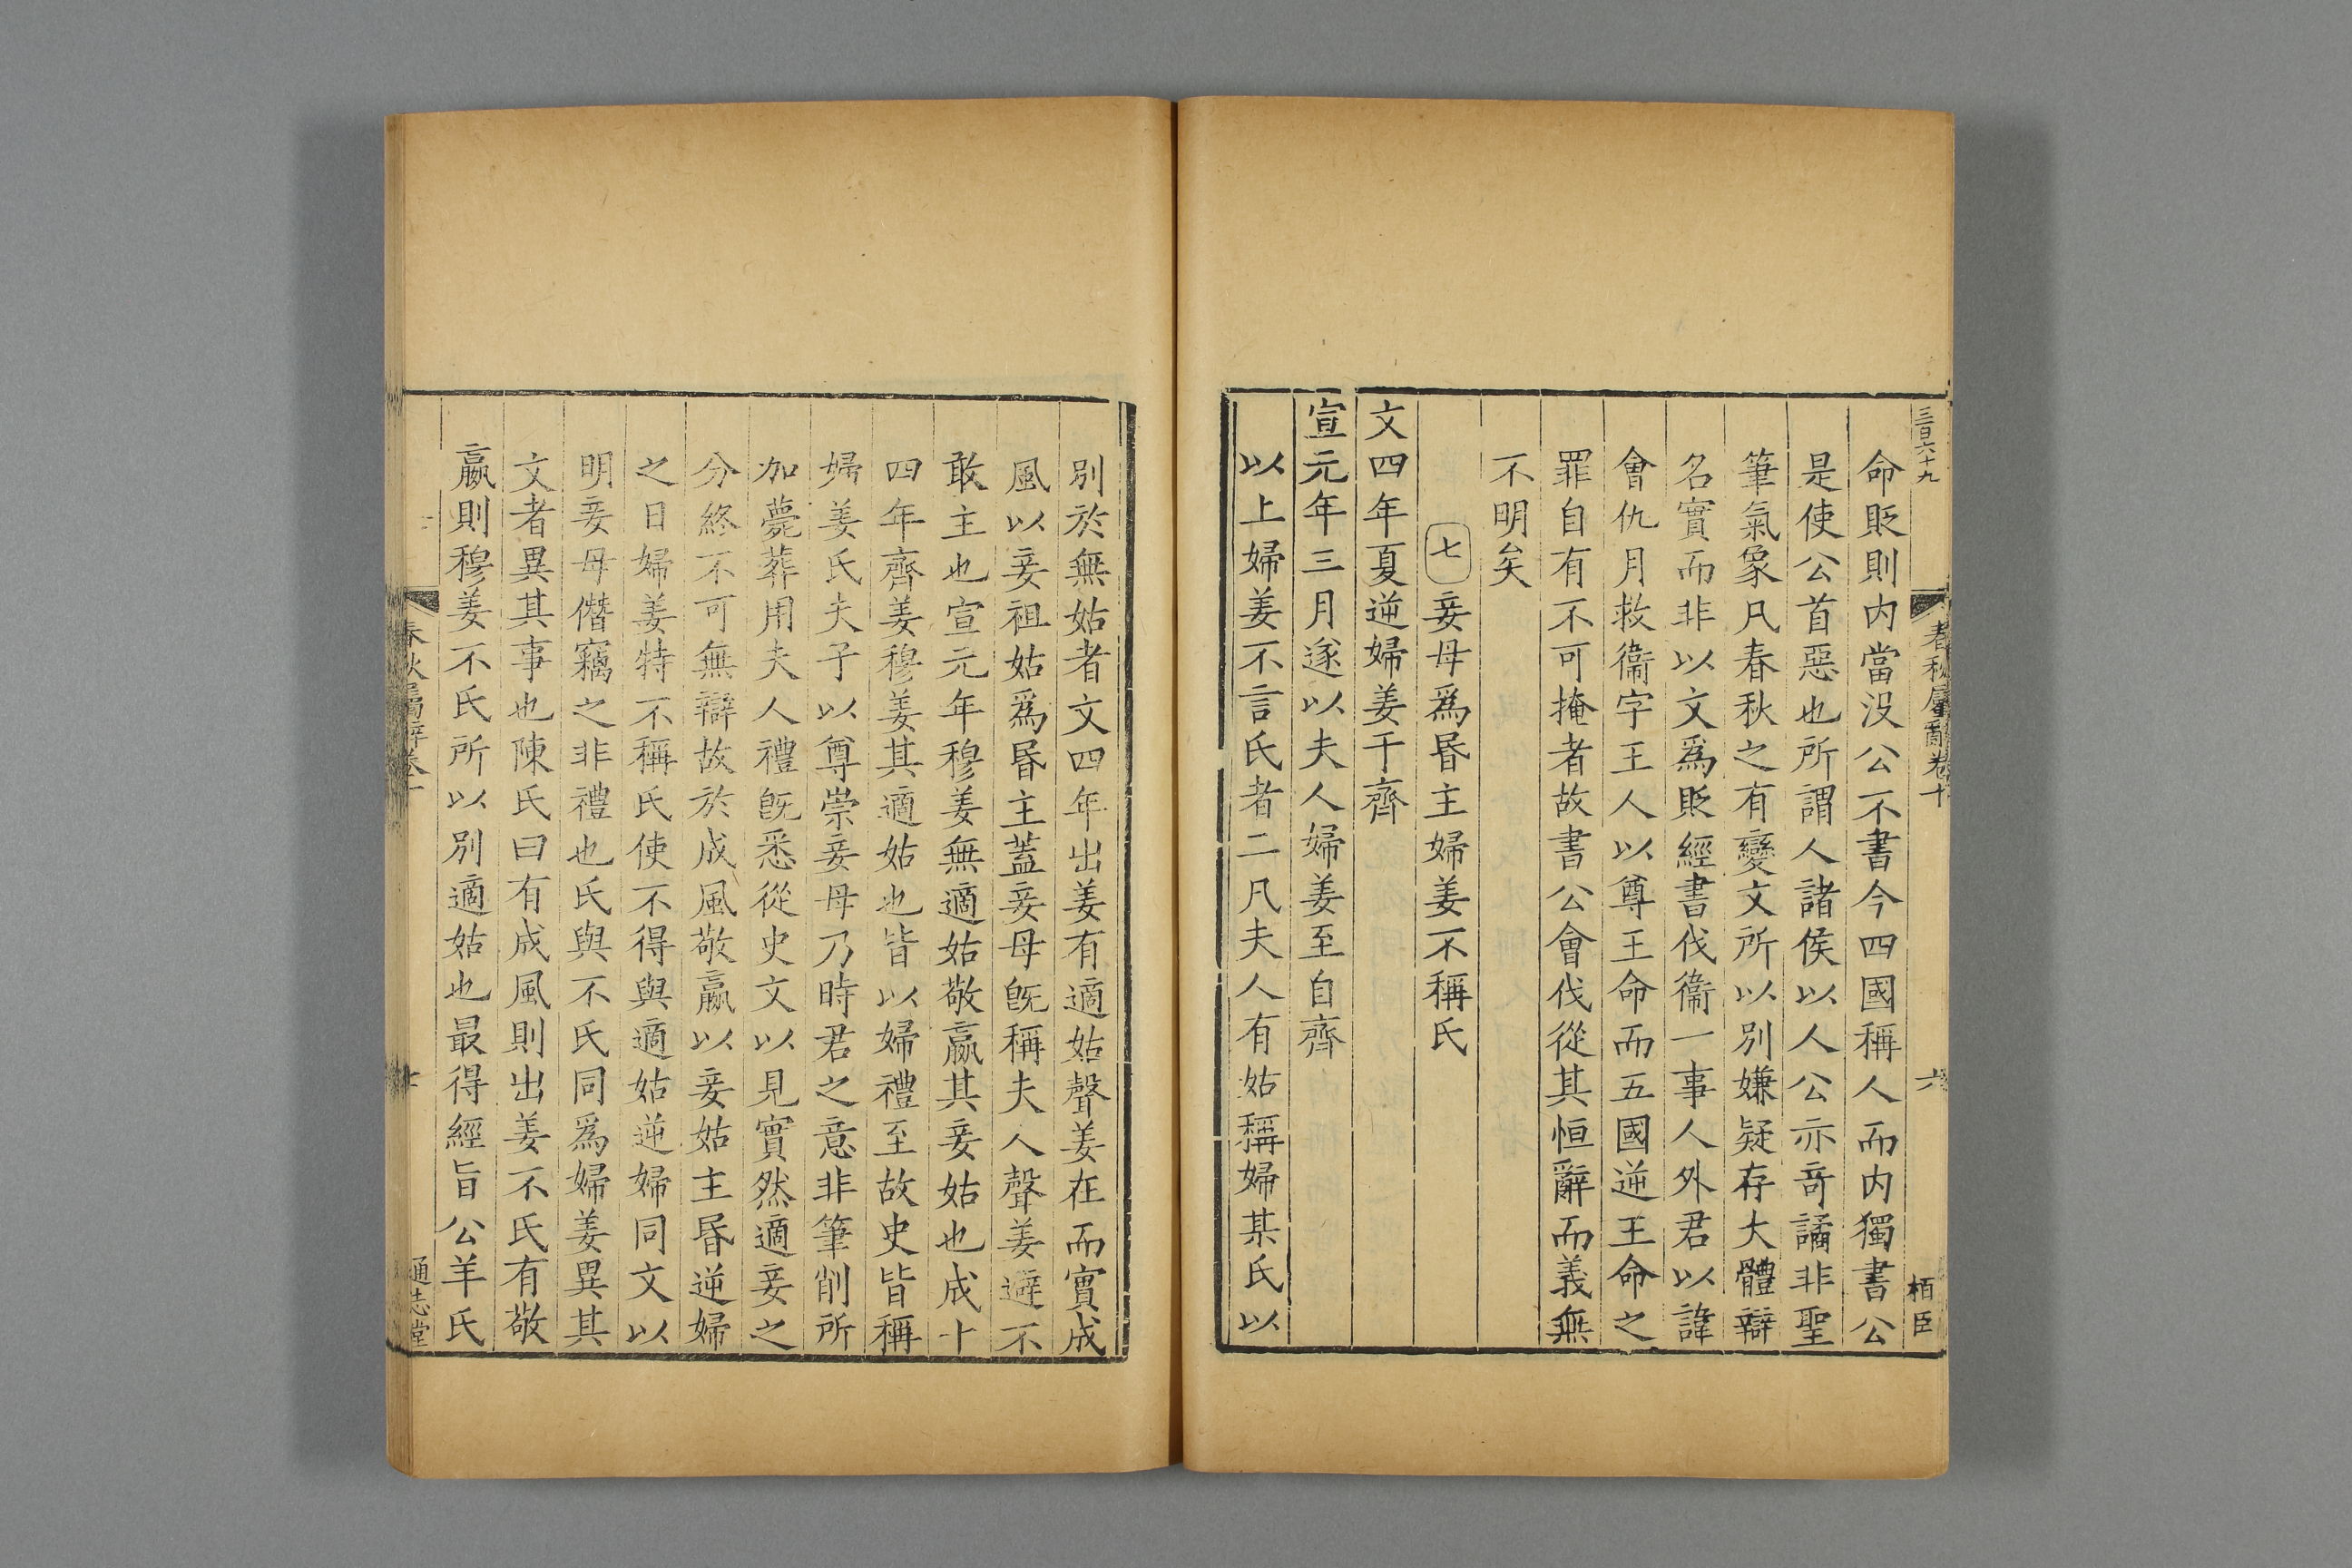 三百六十九
春秋屬辭卷十
六
栢臣
命貶則内當没公不書今四國稱人而内獨書公
是使公首惡也所謂人諸侯以人公亦奇譎非聖
筆氣象凡春秋之有變文所以别嫌疑存大體辯
名實而非以文爲貶經書伐衞一事人外君以諱
會仇月救衞字王人以尊王命而五國逆王命之
罪自有不可掩者故書公會伐從其恒辭而義無
不明矣
七 妾母爲昬主婦姜不稱氏
文四年夏逆婦姜于齊
宣元年三月遂以夫人婦姜至自齊
以上婦姜不言氏者二凡夫人有姑稱婦某氏以
别於無姑者文四年出姜有適姑聲姜在而實成
風以妾祖姑爲昬主葢妾母旣稱夫人聲姜避不
敢主也宣元年穆姜無適姑敬嬴其妾姑也成十
四年齊姜穆姜其適姑也皆以婦禮至故史皆稱
婦姜氏夫子以尊崇妾母乃時君之意非筆削所
加薨葬用夫人禮旣悉從史文以見實然適妾之
分終不可無辯故於成風敬嬴以妾姑主昬逆婦
之日婦姜特不稱氏使不得與適姑逆婦同文以
明妾母僭竊之非禮也氏與不氏同爲婦姜異其
文者異其事也陳氏曰有成風則出姜不氏有敬
嬴則穆姜不氏所以别適姑也最得經旨公羊氏
春秋屬辭卷十
通志堂